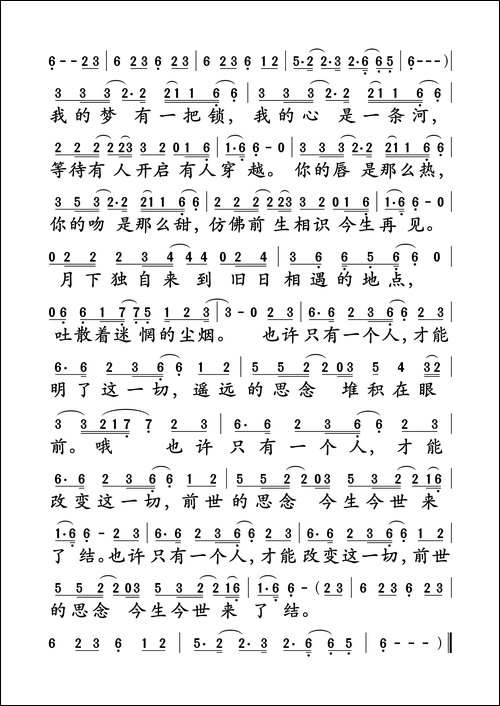 6--23|6 236 23|6 236 12|5·2 2·3 2·665|6---)|
3 3 32·2 211 66|3 3 32·2 211 66|
我的梦 有一把锁, 我的心 是一条河,
2 2 2223 3201 6|1·66-0|3 3 32·2 211 66|
等待有人开启有人穿越。你的唇是那么热,
3 5 32·2 211 66|2 2 2223 3201 6|1·66-0|
你的吻 是那么甜, 仿佛前生相识今生再见。
02 2 2 3 44 02 4|3 6 6566 0|
月下独自来到旧日相遇的地点,
06 6 1775 12 3|3-0 23|6·6 2366 23|
吐散着迷惘的尘烟。 也许只有一个人,才能
6·6 2366 12|5 5 2203 5 4 32|
明了这一切,遥远的思念 堆积在眼
3 32177 23|6·6 2 3 66 2 3|
前。哦 也许只有一个人,才能
6·6 2366 12|5 5 2203 5 3 2216|
改变这一切,前世的思念 今生今世来
1·66-23|6·6 2366 23|6·6 2366 12|
了结。也许只有一个人,才能改变这一切,前世
5 5 2203 5 3 2216|1·66-(23|6 236 23|
的思念 今生今世来了结。
6 2 3 6 1 2|5·2 2 3 2·6 6 5|6---)‖